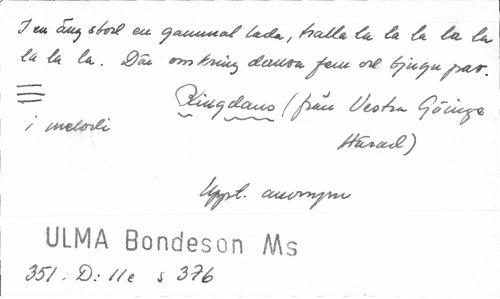 I en äng stod en gammal lada, tralla la la la la la
la la la. Där omkring dansa fem och tjugu par.
Ringdans (från Vestra Göinge
i melodi
Härad)
Uppt. anonym
ULMA Bondeson Ms
351. D: 11e s 376